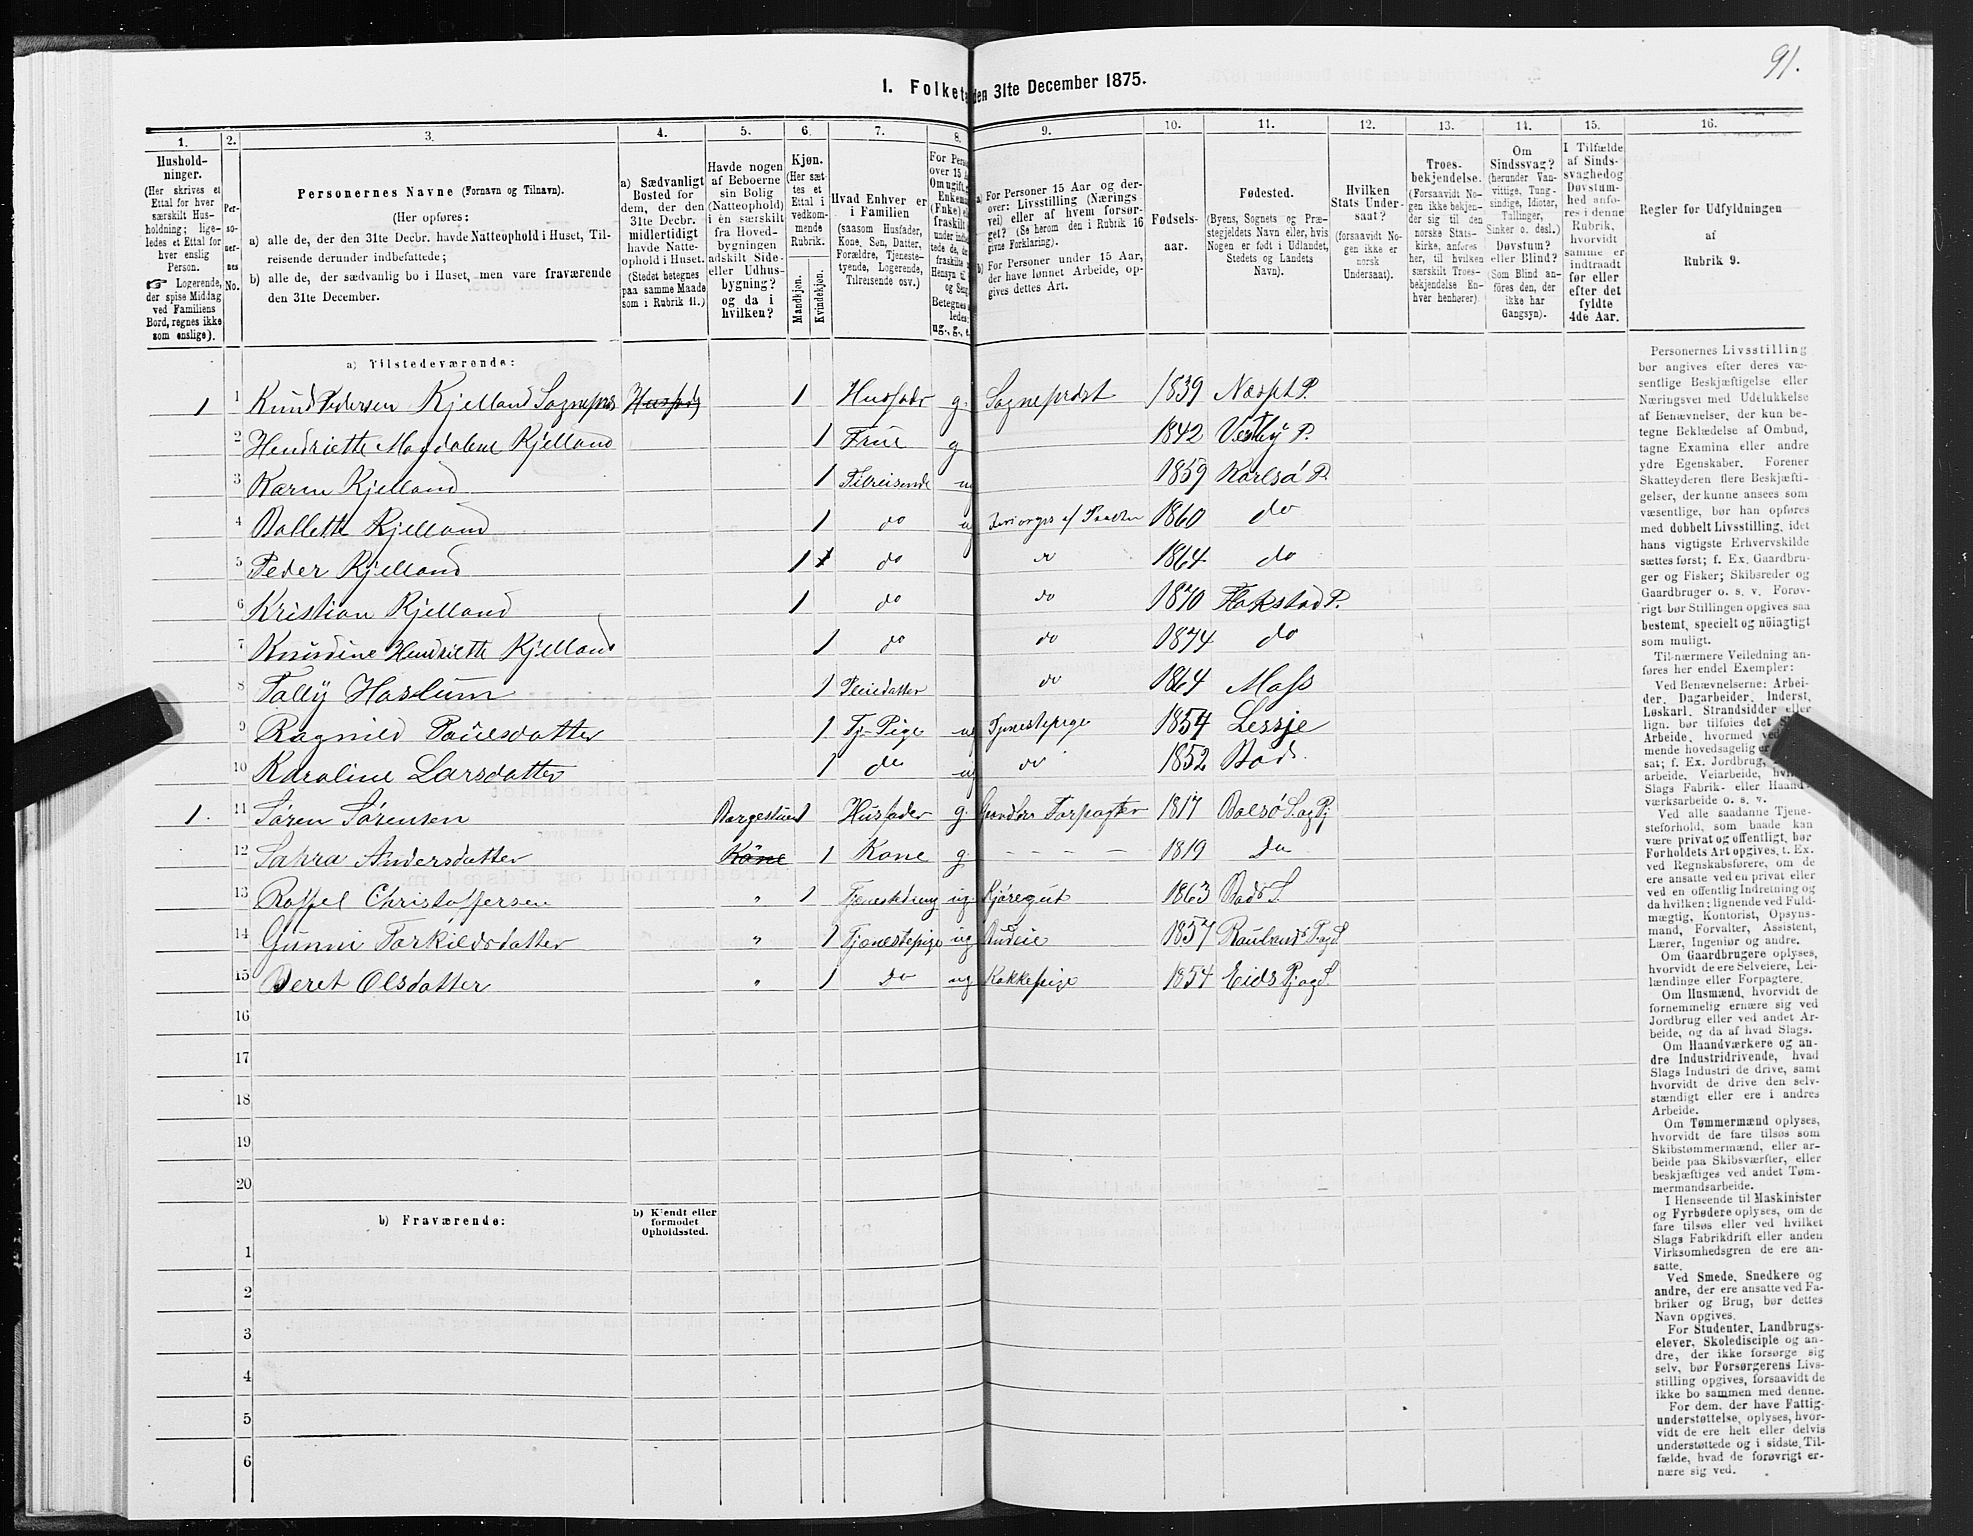 91.
I. Folketæ
den 31te December 1875.
1. 2. 3. 4. 5. 6. 7. 8. 9. 10. 11. 12. 13. 14. 15. 16.
Hushold-
ninger.
(Her skrives et
Ettal for hver
særskilt Hus-
holdning; lige-
ledes et Ettal for
hver enslig
Person.
☞ Logerende,
der spise Middag
ved Familiens
Bord, regnes ikke
som enslige).
Per-
so-
ner-
nes
No.
Personernes Navne (Fornavn og Tilnavn).
(Her opføres:
a) alle de, der den 31te Decbr. havde Natteophold i Huset, Til-
reisende derunder indbefattede;
b) alle de, der sædvanlig bo i Huset, men vare fraværende
den 31te December.
a) Sædvanligt
Bosted for
dem, der den
31te Decbr.
midlertidigt
havde Natte-
ophold i Huset.
(Stedet betegnes
paa samme Maade
som i Rubrik 11.)
Havde nogen
af Beboerne
sin Bolig
(Natteophold)
i én særskilt
fra Hoved-
bygningen
adskilt Side-
eller Udhus-
bygning?
og da i
hvilken?
Kjøn.
(Her sæt-
tes et
Ettal i
vedkom-
mende
Rubrik.
Mandkjøn.
Kvindekjøn.
Hvad Enhver er
i Familien
(saasom Husfader,
Kone, Søn, Datter,
Forældre, Tjeneste-
tyende, Logerende,
Tilreisende osv.)
For Perso
over 15 A
Om ugift, g
Enkema
(Enke) el
fraskilt
Betegnes
ledes:
ug., g., e.
a) For Personer 15 Aar og der-
over: Livsstilling (Nærings-
vei) eller af hvem forsør-
get? (Se herom den i Rubrik 16
givne Forklaring).
b) For Personer under 15 Aar,
der have lønnet Arbeide, op-
gives dettes Art.
Fødsels-
aar.
Fødested.
(Byens, Sognets og Præ-
stegjeldets Navn eller, hvis
Nogen er født i Udlandet,
Stedets og Landets
Navn).
Hvilken
Stats Under-
saat?
(forsaavidt No-
gen ikke er
norsk
Undersaat).
Troes-
bekjendelse.
(Forsaavidt No-
gen ikke bekjen-
der sig til den
norske Stats-
kirke, anføres
her, til hvilken
særskilt Troes-
bekjendelse En-
hver henhører).
Om
Sindssvag?
(herunder Van-
vittige, Tung-
sindige, Idioter,
Tullinger,
Sinker o. desl.)
Døvstum?
eller Blind?
(Som Blind an-
føres den, der
ikke har
Gangsyn).
I Tilfælde
af Sinds-
svaghed og
Døvstum-
hed anfø-
res i denne
Rubrik,
hvorvidt
samme er
indtraadt
før eller
efter det
fyldte
4de Aar.
Regler for Udfyldningen
af
Rubrik 9.
a) Tilstedeværende:
1 1 Knud Pedersen Kjelland Sogneprest 1 Husfader g. Sogneprest 1839 P.
2 Hendriette Magdalene Kjelland 1 Frue g 1842 Vestby P.
3 Karen Kjelland 1 Tilreisende u 1859 Karlsö P.
4 Kjelland 1 do u 1860 do
5 Peder Kjelland 1 do 1864 do
6 Kristian Kjelland 1 do do 1870 Flakstad P.
7 Knudine Hendriette Kjelland 1 do do 1874 do
8 Haslum 1 Pleiedatter do 1864 Moss
9 Ragnild Paulsdatter 1 Tj-Pige u Tjenestepige 1854 Lessje
10 Karoline Larsdatter 1 do u do 1852 Bodö
1. 11 Sören Sörensen Borgestuen 1 Husfader g. Forpagter 1817 S. og Pj
12 Andersdatter Kone 1 Kone g. - - - - 1819 do
13 Christoffersen " 1 ug. Kjöregut 1863 Bodö S.
14 Gunni Torkildsdatter " 1 Tjenestepige ug Budeie 1857
15 Beret Olsdatter " 1 do ug Kokkepige 1854 Eids Pj og S.
16
17
18
19
20
b) Fraværende:
b) Kjendt eller
formodet
Opholdssted.
1
2
3
4
5
6
Personernes Livsstilling
bør angives efter deres væ-
sentlige Beskjæftigelse eller
Næringsvei med Udelukkelse
af Benævnelser, der kun be-
tegne Beklædelse af Ombud,
tagne Examina eller andre
ydre Egenskaber. Forener
Skatteyderen flere Beskjæfti-
gelser, der kunne ansees som
væsentlige, bør han opføres
med dobbelt Livsstilling, idet
hans vigtigste Erhvervskilde
sættes først; f. Ex. Gaardbru-
ger og Fisker; Skibsreder og
Gaardbruger o. s. v. Forøv-
rigt bør Stillingen opgives saa
bestemt, specielt og nöiagtigt
som muligt.
Til nærmere Veiledning an-
føres her endel Exempler:
Ved Benævnelserne: Arbei-
der, Dagarbeider, Inderst,
Løskarl, Strandsidder eller
lign. bør tilføies det
Arbeide, hvormed
mende hovedsagelig er
sat; f. Ex. Jordbrug,
arbeide, Veiarbeide,
Slags Fabrik- eller Haand-
værksarbeide o. s. v.
Ved alle saadanne Tjene-
steforhold, som baade kan
være privat og offentligt, bør
Forholdets Art opgives, f. Ex.
ved Regnskabsførere, om de
ere ansatte ved en privat eller
ved en offentlig Indretning og
da hvilken; lignende ved Fuld-
mægtig, Kontorist, Opsyns-
mand, Forvalter, Assistent,
Lærer, Ingeniør og andre.
Om Gaardbrugere oplyses,
hvorvidt de ere Selveiere, Lei-
lændinge eller Forpagtere.
Om Husmænd, hvorvidt de
fornemmelig ernære sig ved
Jordbrug eller ved andet Ar-
beide, og da af hvad Slags.
Om Haandværkere og an-
dre Industridrivende, hvad
Slags Industri de drive, samt
hvorvidt de drive den selv-
stændigt eller ere i andres
Arbeide.
Om Tømmermænd oplyses,
hvorvidt de fare tilsøs som
Skibstømmermænd, eller ar-
beide paa Skibsværfter, eller
beskjæftiges ved andet Tøm-
mermandsarbeide.
I Henseende til Maskinister
og Fyrbødere oplyses, om de
fare tilsøs eller ved hvilket
Slags Fabrikdrift eller anden
Virksomhedsgren de ere an-
satte.
Ved Smede, Snedkere og
andre, der ere ansatte ved Fa-
briker og Brug, bør dettes
Navn opgives.
For Studenter, Landbrugs-
elever, Skoledisciple og an-
dre, der ikke forsørge sig
selv, bør Forsørgerens Livs-
stilling opgives, forsaavidt de
ikke bo sammen med denne.
For dem, der have Fattig-
understøttelse, oplyses, hvor-
vidt de ere helt eller delvis
understøttede og i sidste Til-
fælde, hvad de forøvrigt er-
nære sig ved.